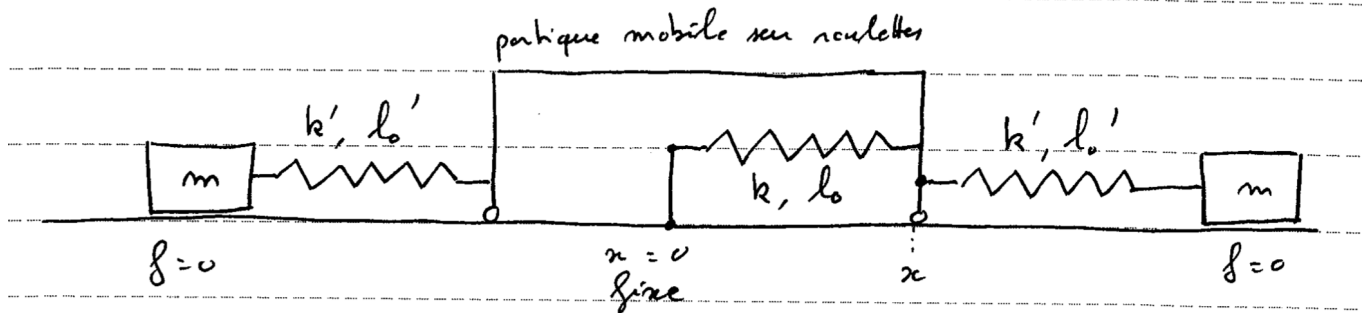 portique mobile sur roulettes
k', l₀' k', l₀'
m k, l₀ m
f=0 x=0 x f=0
fixe